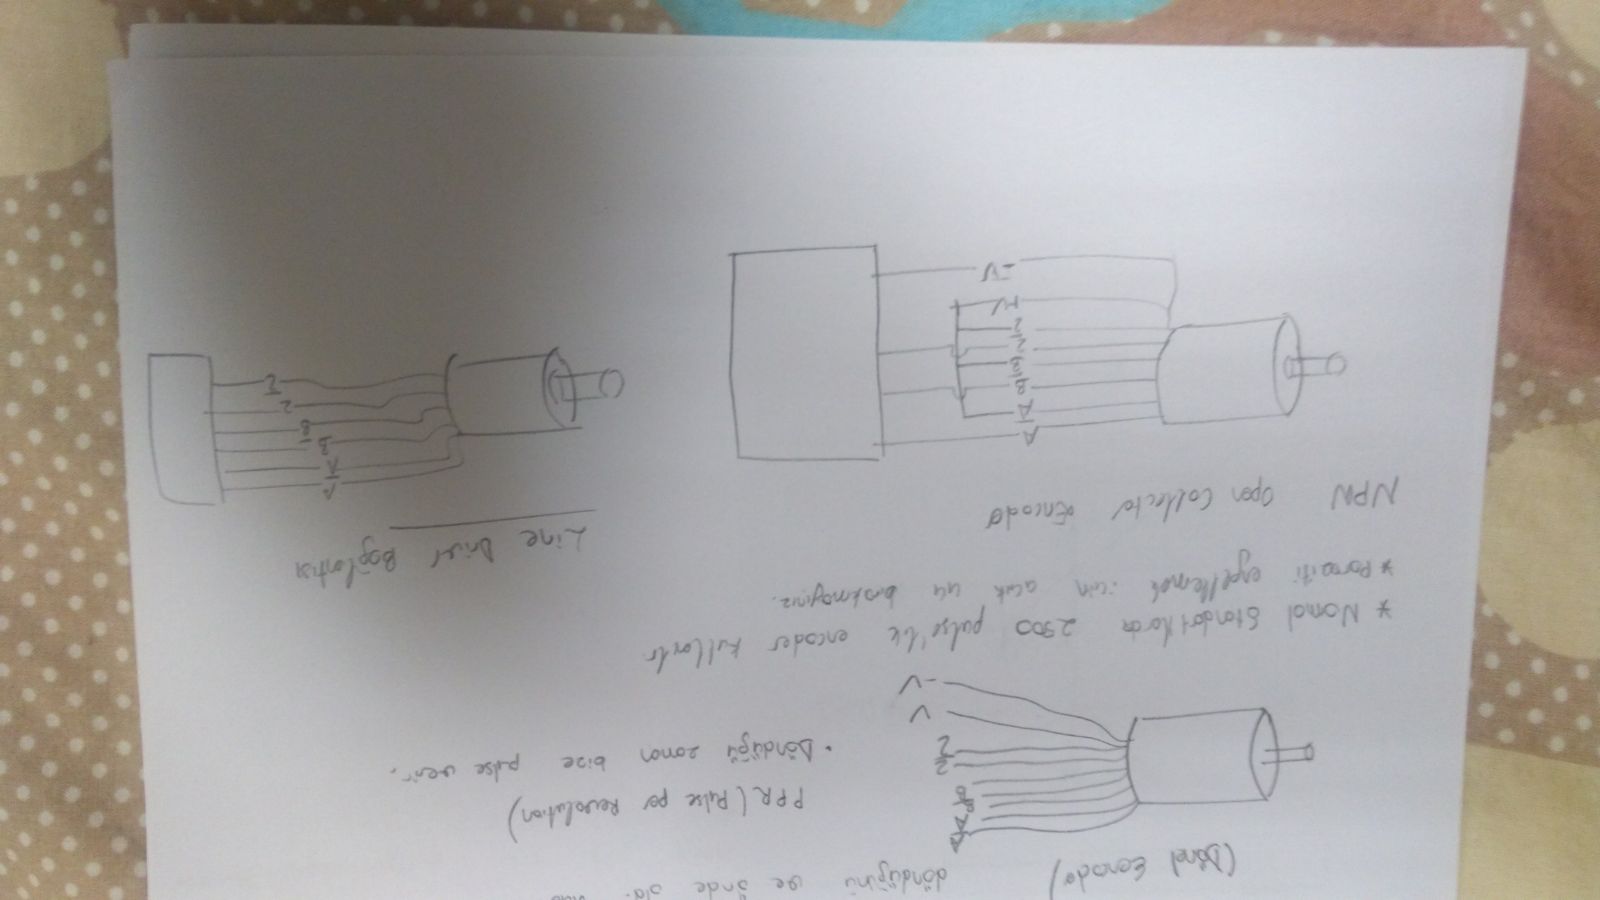 (Dönel Encoder)
döndüğünü ve önde
A
A̅
B
B̅
Z
Z̅
V
-V
PPR (Pulse per Revolution)
• Döndüğü zaman bize pulse verir.
* Normal Standartlarda 2500 pulse'lik encoder kullanılır.
* Paraziti engellemek için açık uç bırakmayınız.
NPN Open Collector Encoder
Line Driver Bağlantısı
A
A̅
B
B̅
Z
Z̅
+V
-V
A
A̅
B
B̅
Z
Z̅